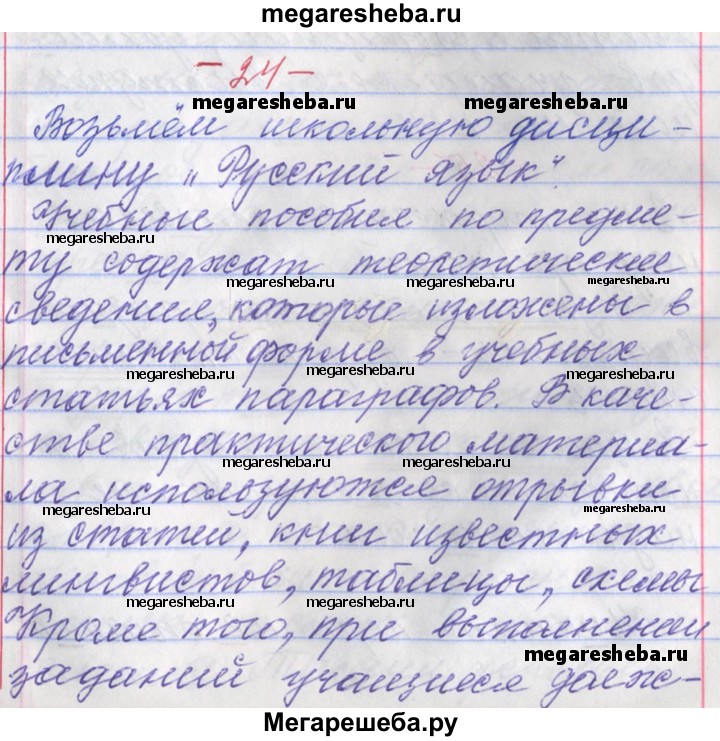 megaresheba.ru
- 24 -
megaresheba.ru megaresheba.ru
Возьмём школьную дисци-
плину „Русский язык".
Учебные пособия по предме-
megaresheba.ru
ту содержат теоретические
megaresheba.ru megaresheba.ru megaresheba.ru
сведения, которые изложены в
письменной форме в учебных
megaresheba.ru megaresheba.ru megaresheba.ru
статьях параграфов. В каче-
стве практического материа-
megaresheba.ru megaresheba.ru
ла используются отрывки
megaresheba.ru megaresheba.ru
из статей, книг известных
лингвистов, таблицы, схемы
megaresheba.ru megaresheba.ru
Кроме того, при выполнении
megaresheba.ru
заданий учащиеся долж-
Мегарешеба.ру